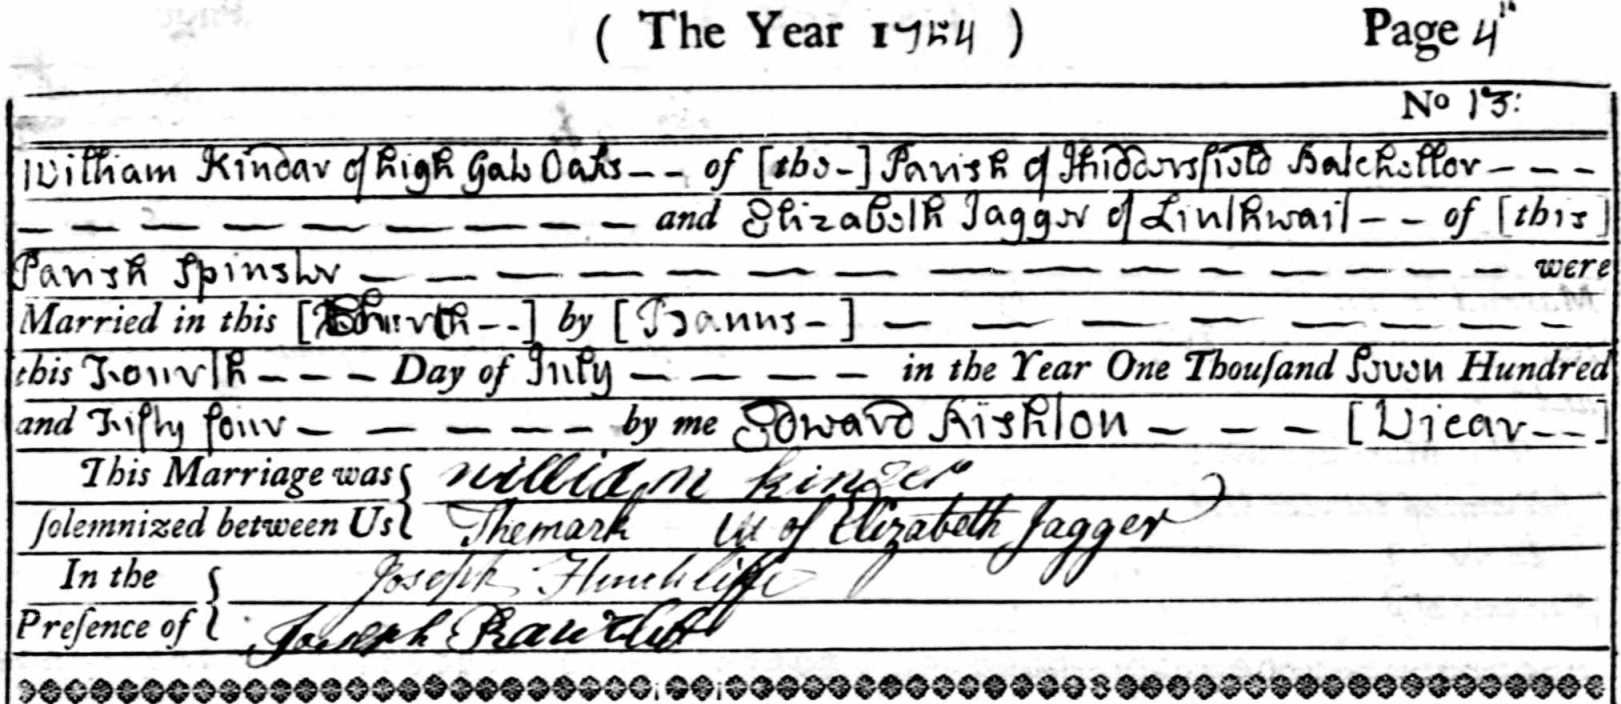 ( The Year 1754 ) Page 4th
No 13:
William Kindar of high Gate Oaks -- of [the -] Parish of Huddersfield Batchellor - - -
— — — — — — — — — — — and Elizabeth Jagger of Linthwait - - of [this]
Parish Spinster — — — — — — — — — — — — — — were
Married in this [Church --] by [Banns -] — — — — — — —
this Fourth - - - Day of July — — — — — in the Year One Thouſand Seven Hundred
and Fifty four — — — — — — by me Edward Rishton — — — — [Vicar --]
This Marriage was { william kinder
ſolemnized between Us { The mark of Elizabeth Jagger
In the { Joseph Hinchliffe
Preſence of { Joseph